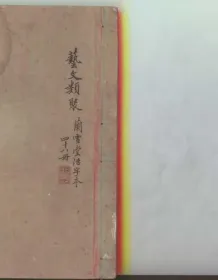 藝文類聚
蘭雪堂活字本
四十八冊